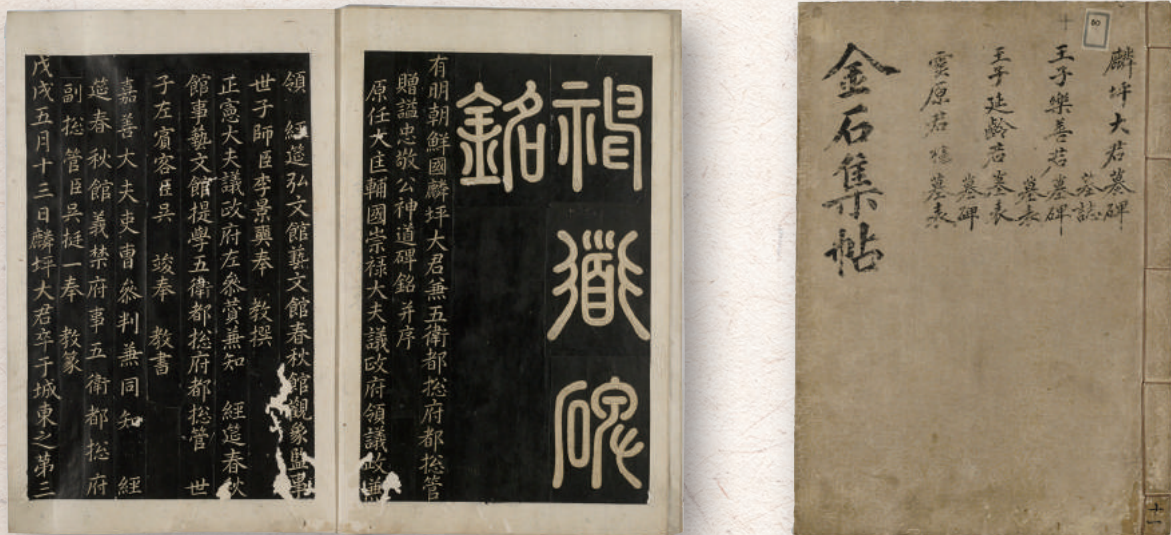 神道碑
銘
有明朝鮮國麟坪大君兼五衛都摠府都摠管
贈謚忠敬公神道碑銘 并序
原任大匡輔國崇祿大夫議政府領議政兼
領 經筵弘文館藝文館春秋館觀象監事
世子師臣李景奭奉 教撰
正憲大夫議政府左參贊兼知 經筵春秋
館事藝文館提學五衛都摠府都摠管 世
子左賓客臣吳 竣奉 教書
嘉善大夫吏曹參判兼同知 經
筵春秋館義禁府事五衛都摠府
副摠管臣吳挺一奉 教篆
戊戌五月十三日麟坪大君卒于城東之第三
麟坪大君墓碑
墓誌
王子樂善君墓碑
墓表
王子延齡君墓表
墓碑
靈原君櫶墓表
金石集帖
80
十一